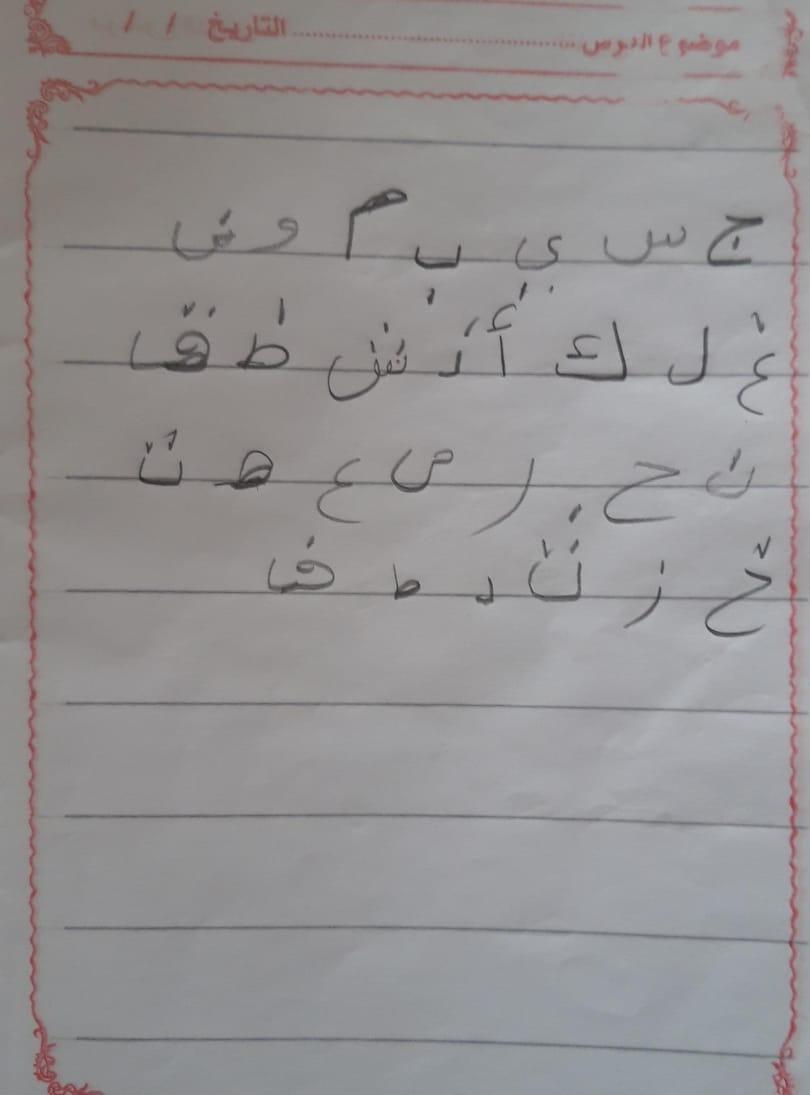 موضوع الدرس .......................... التاريخ / /
ج س ي ب م و ض
غ ل ك أ ذ ش ظ ق
ن ح ر ص ع ه ت
خ ز ث د ط ف